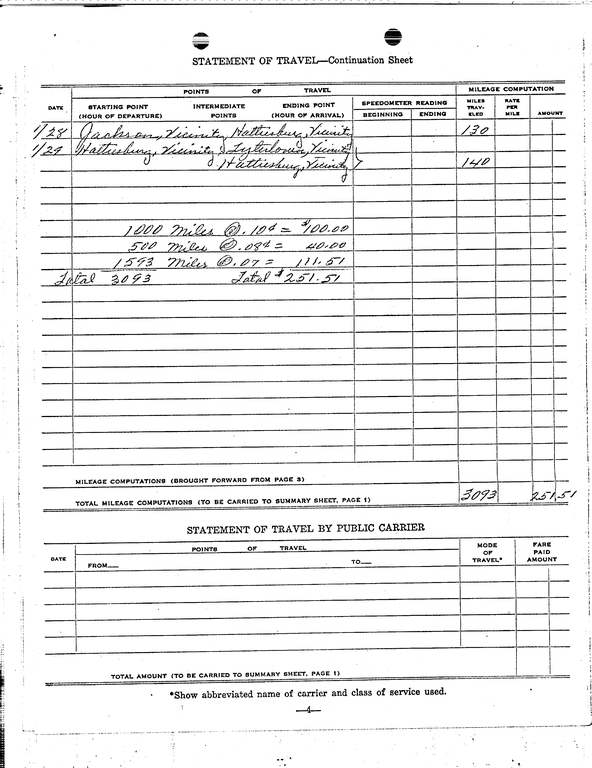 STATEMENT OF TRAVEL—Continuation Sheet
POINTS OF TRAVEL MILEAGE COMPUTATION
DATE STARTING POINT (HOUR OF DEPARTURE) INTERMEDIATE POINTS ENDING POINT (HOUR OF ARRIVAL) SPEEDOMETER READING BEGINNING ENDING MILES TRAV- ELED RATE PER MILE AMOUNT
1/28 Jackson, Vicinity, Hattiesburg, Vicinity 130
1/29 Hattiesburg, Vicinity & Vicinity
Hattiesburg, Vicinity 140
1000 Miles @ .10¢ = $100.00
500 Miles @ .08¢ = 40.00
1593 Miles @ .07 = 111.51
Total 3093 Total $251.51
MILEAGE COMPUTATIONS (BROUGHT FORWARD FROM PAGE 3)
TOTAL MILEAGE COMPUTATIONS (TO BE CARRIED TO SUMMARY SHEET, PAGE 1) 3093 251.51
STATEMENT OF TRAVEL BY PUBLIC CARRIER
DATE POINTS OF TRAVEL MODE OF TRAVEL* FARE PAID AMOUNT
FROM__ TO__
TOTAL AMOUNT (TO BE CARRIED TO SUMMARY SHEET, PAGE 1)
*Show abbreviated name of carrier and class of service used.
—4—